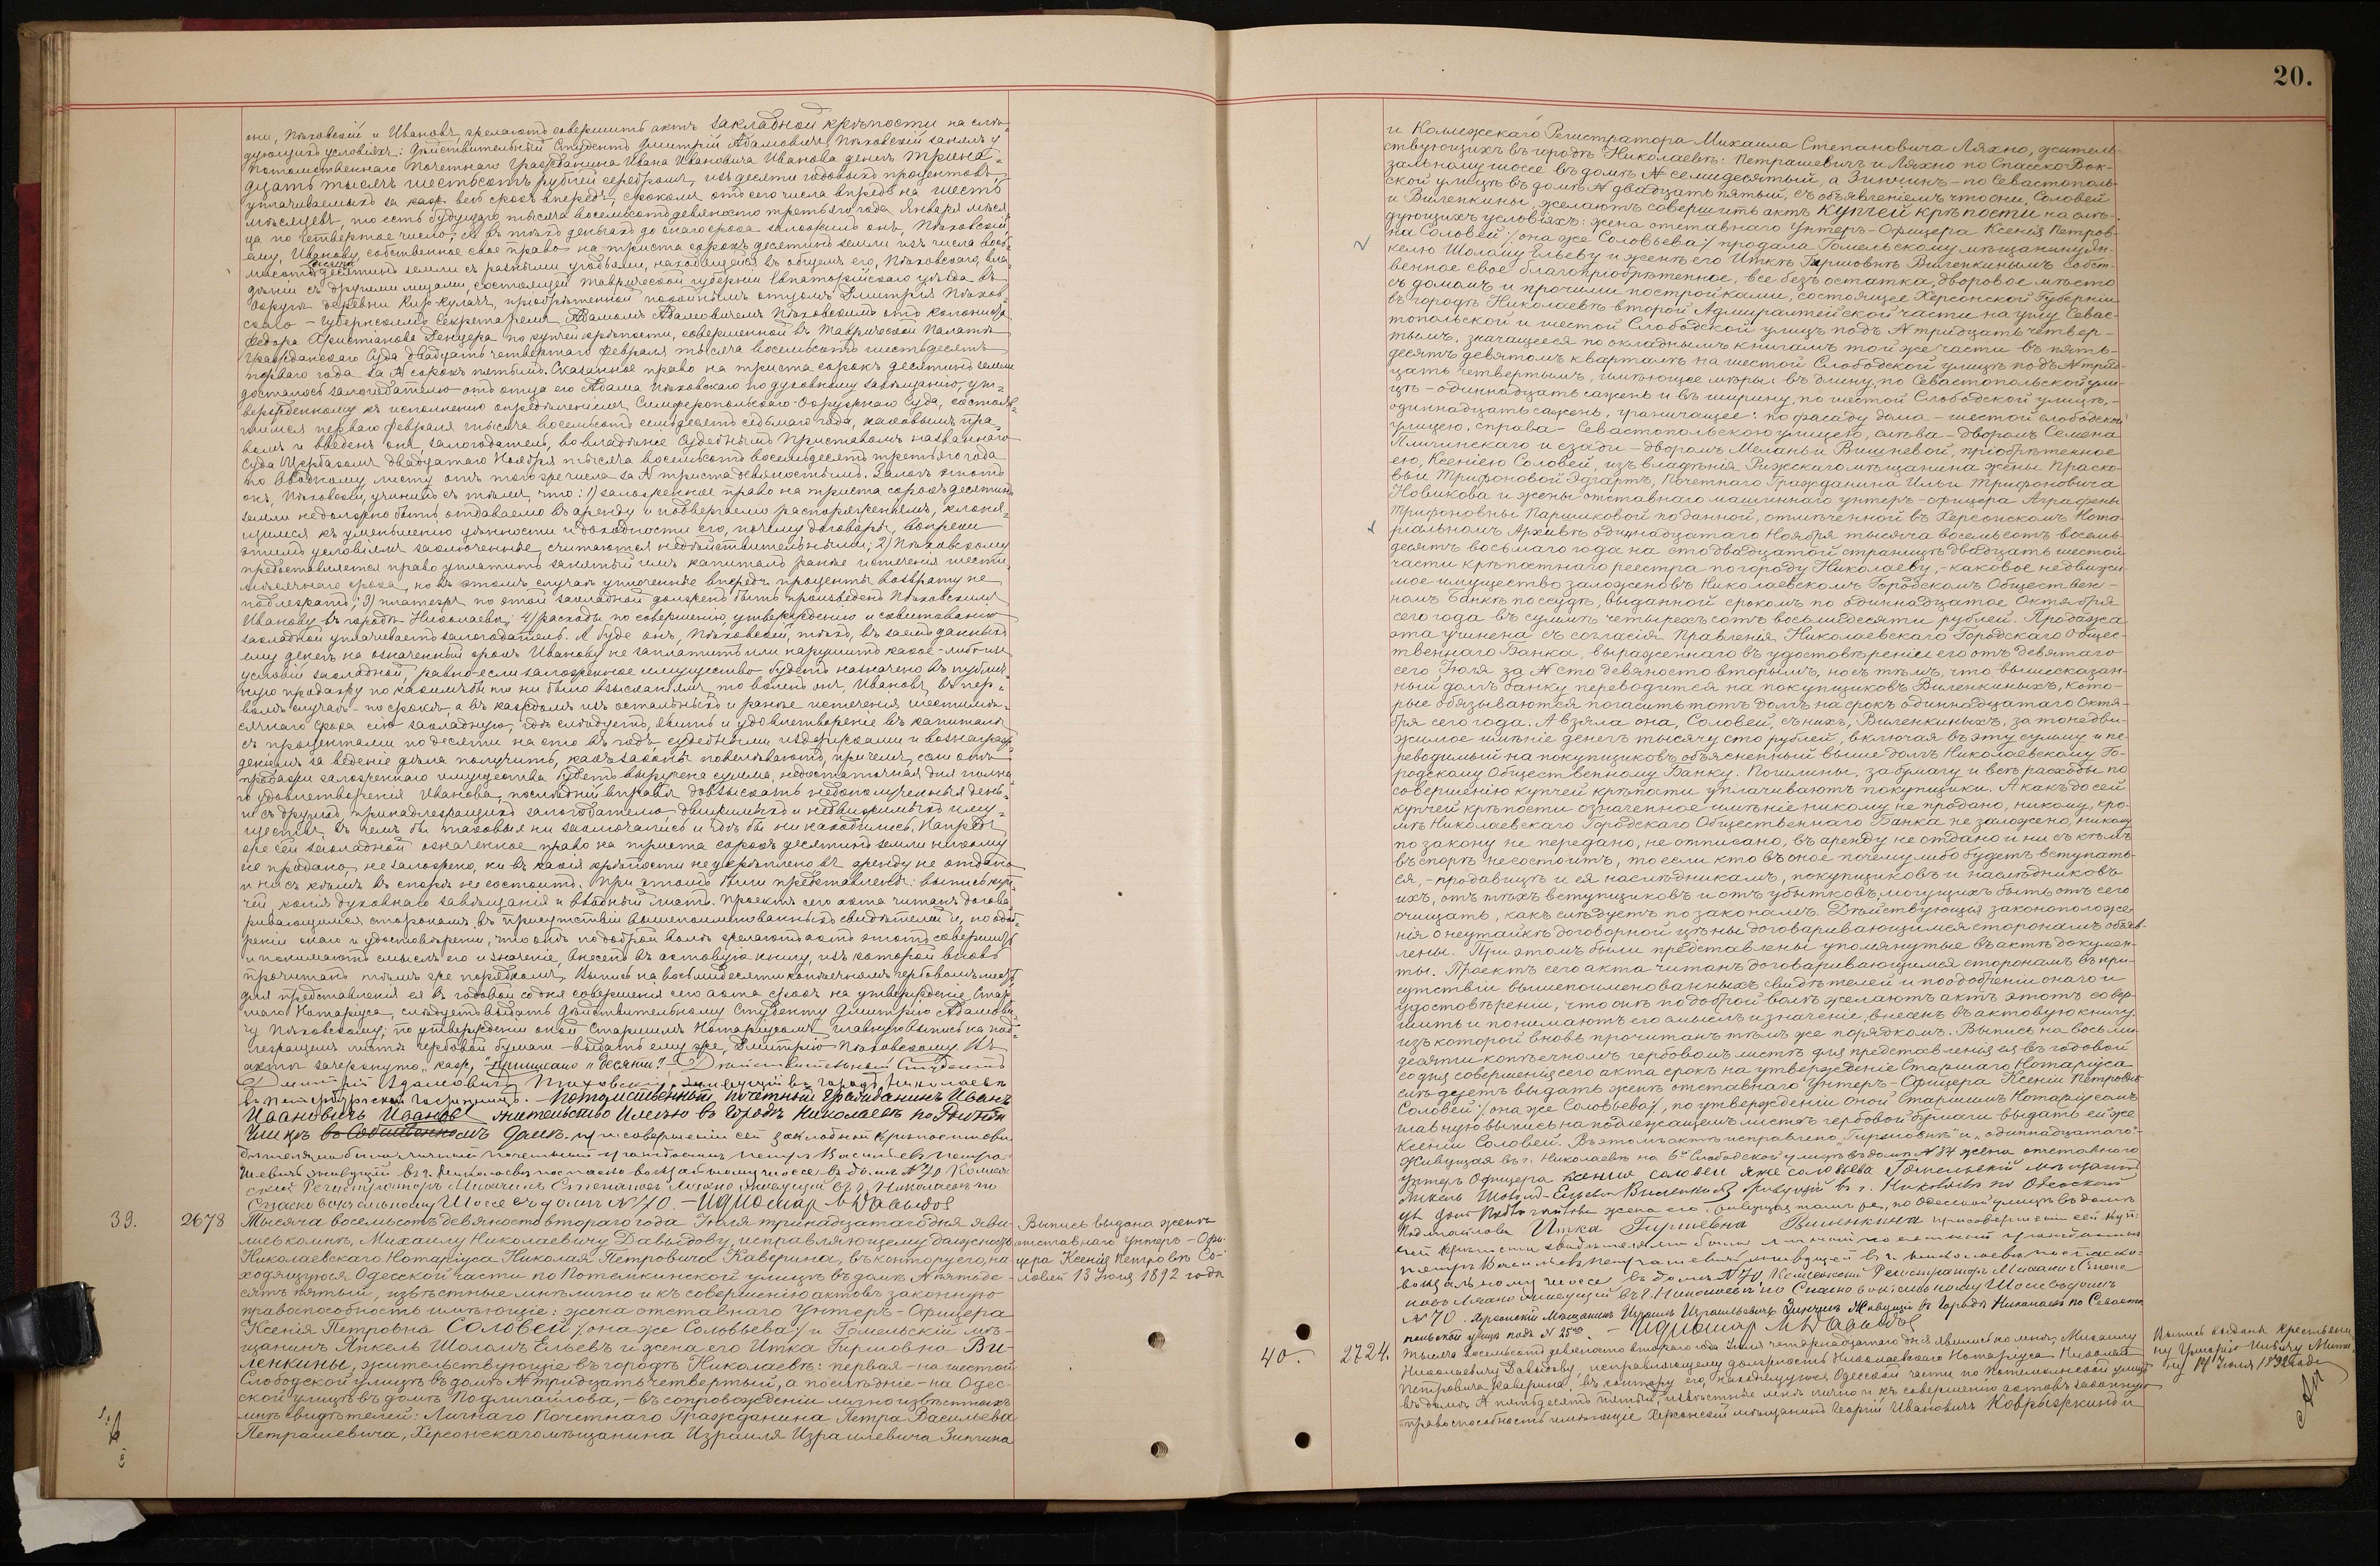 20.
они, Пѣховскій и Ивановъ, желаютъ совершить актъ закладной крѣпости на слѣ-
дующихъ условіяхъ: Дѣйствительный Студентъ Дмитрій Адамовичъ Пѣховскій занялъ у
Потомственнаго Почетнаго Гражданина Ивана Ивановича Иванова денегъ трина-
дцать тысячъ шестьсотъ рублей серебромъ, изъ десяти годовыхъ процентовъ,
уплачиваемыхъ за весь срокъ впередъ, срокомъ отъ сего числа впредь на шесть
мѣсяцевъ, то есть будущаго тысяча восемьсотъ девяносто третьяго года Января мѣся-
ца по четвертое число, а въ тѣхъ деньгахъ до онаго срока заложилъ онъ, Пѣховскій,
ему, Иванову, собственное свое право на триста сорокъ десятинъ земли изъ числа
десятинъ земли съ разными угодьями, находящейся въ общемъ его, Пѣховскаго, вла-
дѣніи съ другими лицами, состоящей Таврической губерніи Евпаторійскаго уѣзда въ
округѣ деревни пріобрѣтенной покойнымъ отцомъ Дмитрія Пѣхов-
скаго – Губернскимъ Секретаремъ Адамомъ Адамовичемъ Пѣховскимъ отъ колониста
Федора Христіанова по купчей крѣпости, совершенной въ Таврической Палатѣ
Гражданскаго Суда двадцать четвертаго Февраля тысяча восемьсотъ шестьдесятъ
перваго года за № сорокъ пятымъ. Сказанное право на триста сорокъ десятинъ земли
досталось залогодателю отъ отца его Адама Пѣховскаго по духовному завѣщанію, ут-
вержденному къ исполненію опредѣленіемъ Симферопольскаго Окружнаго Суда, состояв-
шимся перваго Февраля тысяча восемьсотъ семьдесятъ седьмаго года, каковымъ пра-
вомъ и введенъ онъ, залогодатель, во владѣніе Судебнымъ Приставомъ названнаго
Суда Щербакомъ двадцатаго Ноября тысяча восемьсотъ восемьдесятъ третьяго года
по вводному листу отъ того же числа за № триста девяностымъ. Залогъ этотъ
онъ, Пѣховскій, учинилъ съ тѣмъ, что: 1) заложенное право на триста сорокъ десятинъ
земли не должно быть отдаваемо въ аренду и подвергаемо распоряженіямъ, клоня-
щимся къ уменьшенію цѣнности и доходности его, почему договоры, вопреки
этимъ условіямъ заключенные, считаются недѣйствительными; 2) Пѣховскому
предоставляется право уплатить занятый имъ капиталъ ранѣе истеченія шести-
мѣсячнаго срока, но въ этомъ случаѣ уплоченные впередъ проценты возврату не
подлежатъ; 3) платежъ по этой закладной долженъ быть произведенъ Пѣховскимъ
Иванову въ городѣ Николаевѣ; 4) расходы по совершенію, утвержденію и
закладной уплачиваетъ залогодатель. А буде онъ, Пѣховскій, тѣхъ, въ заемъ данныхъ
ему денегъ на означенный срокъ Иванову не заплатитъ или нарушитъ какое-либо изъ
условій закладной, равно если заложенное имущество будетъ назначено въ публич-
ную продажу по какимъ бы то ни было взысканіямъ, то воленъ онъ, Ивановъ, въ пер-
вомъ случаѣ – по срокѣ, а въ каждомъ изъ остальныхъ и ранѣе истеченія шестимѣ-
сячнаго срока сію закладную, гдѣ слѣдуетъ, явить и удовлетвореніе въ капиталѣ
съ процентами по десяти на сто въ годъ, судебными издержками и вознаграж-
деніемъ за веденіе дѣла получить, какъ законы повелѣваютъ, при чемъ, если отъ
продажи заложеннаго имущества будетъ выручена сумма, недостаточная для полна-
го удовлетворенія Иванова, послѣдній вправѣ довзыскать недополученныя день-
ги съ другихъ, принадлежащихъ залогодателю, движимыхъ и недвижимыхъ иму-
ществъ, въ чемъ бы таковыя ни заключались и гдѣ бы ни находились. Напредь
же сей закладной означенное право на триста сорокъ десятинъ земли никому
не продано, не заложено, ни въ какія крѣпости не укрѣплено, въ аренду не отдано
и ни съ кѣмъ въ спорѣ не состоитъ. При этомъ были представлены: выпись куп-
чей, копія духовнаго завѣщанія и вводный листъ. Проектъ сего акта читанъ догова-
ривающимся сторонамъ въ присутствіи вышепоименованныхъ свидѣтелей и, по одоб-
реніи онаго и удостовѣреніи, что онѣ по доброй волѣ желаютъ актъ этотъ совершить
и понимаютъ смыслъ его и значеніе, внесенъ въ актовую книгу, изъ которой вновь
прочитанъ тѣмъ же порядкомъ. Выпись на восьмидесятикопѣечномъ гербовомъ листѣ
для представленія ея въ годовой со дня совершенія сего акта срокъ на утвержденіе Стар-
шаго Нотаріуса, слѣдуетъ выдать Дѣйствительному Студенту Дмитрію Адамови-
чу Пѣховскому; по утвержденіи оной Старшимъ Нотаріусомъ главную выпись на под-
лежащемъ листѣ гербовой бумаги – выдать ему же, Дмитрію Пѣховскому. Въ
актѣ зачеркнуто „каж“, приписано „десяти“. Дѣйствительный Студентъ
Дмитрій Адамовичъ Пѣховскій, живущій въ городѣ Николаевѣ
въ Петербургской гостинницѣ. – Потомственный Почетный Гражданинъ Иванъ
Ивановичъ Ивановъ жительство имѣю въ городѣ Николаевѣ по
улицѣ въ собственномъ домѣ. При совершеніи сей закладной крѣпости сви-
дѣтелями были личный почетный гражданинъ Петръ Васильевъ Петра-
шевичъ живущій въ г. Николаевѣ по Спасско Вокзальному шоссе въ домѣ № 70 Коллеж-
скій Регистраторъ Михаилъ Степановъ Ляхно живущій въ г. Николаевѣ по
Спаско вокзальному Шоссе въ домѣ № 70. – И д Нотар М Давыдовъ
39.
2678
Тысяча восемьсотъ девяносто втораго года Іюля тринадцатаго дня яви-
лись ко мнѣ, Михаилу Николаевичу Давыдову, исправляющему должность
Николаевскаго Нотаріуса Николая Петровича Каверина, въ контору его, на-
ходящуюся Одесской части по Потемкинской улицѣ въ домѣ № пятьде-
сятъ пятый, извѣстные мнѣ лично и къ совершенію актовъ законную
правоспособность имѣющіе: жена отставнаго Унтеръ-Офицера
Ксенія Петровна Соловей /она же Соловьева/ и Гомельскій мѣ-
щанинъ Янкель Шоломъ Ельевъ и жена его Итка Гиршовна Ви-
ленкины, жительствующіе въ городѣ Николаевѣ: первая – на шестой
Слободской улицѣ въ домѣ № тридцать четвертый, а послѣдніе – на Одес-
ской улицѣ въ домѣ Подлигайлова, – въ сопровожденіи лично извѣстныхъ
мнѣ свидѣтелей: Личнаго Почетнаго Гражданина Петра Васильева
Петрашевича, Херсонскаго мѣщанина Израиля Израилевича Зинчина
Выпись выдана женѣ
отставнаго Унтеръ-Офи-
цера Ксеніи Петровнѣ Со-
ловей 13 Іюля 1892 года
и Коллежскаго Регистратора Михаила Степановича Ляхно, житель-
ствующихъ въ городѣ Николаевѣ: Петрашевичъ и Ляхно по Спасско Вок-
зальному шоссе въ домѣ № семидесятый, а Зинчинъ – по Севастополь-
ской улицѣ въ домѣ № двадцать пятый, съ объявленіемъ что они, Соловей
и Виленкины, желаютъ совершить актъ купчей крѣпости на слѣ-
дующихъ условіяхъ: жена отставнаго Унтеръ-Офицера Ксенія Петров-
на Соловей /она же Соловьева/ продала Гомельскому мѣщанину Ян-
келю Шолому Ельеву и женѣ его Иткѣ Гиршовнѣ Виленкинымъ собст-
венное свое благопріобрѣтенное, все безъ остатка, дворовое мѣсто
съ домомъ и прочими постройками, состоящее Херсонской Губерніи
въ городѣ Николаевѣ второй Адмиралтейской части на углу Севас-
топольской и шестой Слободской улицъ подъ № тридцать четвер-
тымъ, значащееся по окладнымъ книгамъ той же части въ пять-
десятъ девятомъ кварталѣ на шестой Слободской улицѣ подъ № трид-
цать четвертымъ, имѣющее мѣры: въ длину, по Севастопольской ули-
цѣ – одиннадцать сажень и въ ширину, по шестой Слободской улицѣ, –
одиннадцать сажень, граничащее: по фасаду дома – шестой слободской
улицею, справа – Севастопольскою улицею, слѣва – дворомъ Семена
Пличинскаго и сзади – дворомъ Меланьи Вишневой, пріобрѣтенное
ею, Ксеніею Соловей, изъ владѣнія Рижскаго мѣщанина жены Праско-
вьи Трифоновой Эдгартъ, Почетнаго Гражданина Ильи Трифоновича
Новикова и жены отставнаго машиннаго унтеръ-офицера Аграфены
Трифоновны Паршиковой по данной, отмѣченной въ Херсонскомъ Нота-
ріальномъ Архивѣ одиннадцатаго Ноября тысяча восемьсотъ восемь-
десятъ восьмаго года на сто двадцатой страницѣ двадцать шестой
части крѣпостнаго реестра по городу Николаеву, – каковое недвижи-
мое имущество заложено въ Николаевскомъ Городскомъ Обществен-
номъ Банкѣ по ссудѣ, выданной срокомъ по одиннадцатое Октября
сего года въ суммѣ четырехъ сотъ восьмидесяти рублей. Продажа
эта учинена съ согласія Правленія Николаевскаго Городскаго Общес-
твеннаго Банка, выраженнаго въ удостовѣреніи его отъ девятаго
сего Іюля за № сто девяносто вторымъ, но съ тѣмъ, что вышесказан-
ный долгъ банку переводится на покупщиковъ Виленкиныхъ, кото-
рые обязываются погасить тотъ долгъ на срокъ одиннадцатаго Октя-
бря сего года. А взяла она, Соловей, съ нихъ, Виленкиныхъ, за то недви-
жимое имѣніе денегъ тысячу сто рублей, включая въ эту сумму и пе-
реводимый на покупщиковъ объясненный выше долгъ Николаевскому Го-
родскому Общественному Банку. Пошлины, за бумагу и всѣ расходы по
совершенію купчей крѣпости уплачиваютъ покупщики. А какъ до сей
купчей крѣпости означенное имѣніе никому не продано, никому, кро-
мѣ Николаевскаго Городскаго Общественнаго Банка не заложено, никому
по закону не передано, не отписано, въ аренду не отдано и ни съ кѣмъ
въ спорѣ не состоитъ, то если кто въ оное почему либо будетъ вступать-
ся, – продавицѣ и ея наслѣдникамъ, покупщиковъ и наслѣдниковъ
ихъ, отъ тѣхъ вступщиковъ и отъ убытковъ, могущихъ быть отъ сего
очищать, какъ слѣдуетъ по законамъ. Дѣйствующія законоположе-
нія о неутайкѣ договорной цѣны договаривающимся сторонамъ объяв-
лены. При этомъ были представлены упомянутые въ актѣ докумен-
ты. Проектъ сего акта читанъ договаривающимся сторонамъ въ при-
сутствіи вышепоименованныхъ свидѣтелей и по одобреніи онаго и
удостовѣреніи, что онѣ по доброй волѣ желаютъ актъ этотъ совер-
шить и понимаютъ его смыслъ и значеніе, внесенъ въ актовую книгу,
изъ которой вновь прочитанъ тѣмъ же порядкомъ. Выпись на восьми-
десяти копѣечномъ гербовомъ листѣ для представленія ея въ годовой
со дня совершенія сего акта срокъ на утвержденіе Старшаго Нотаріуса
слѣдуетъ выдать женѣ отставнаго Унтеръ-Офицера Ксеніи Петровнѣ
Соловей /она же Соловьева/, по утвержденіи оной Старшимъ Нотаріусомъ
главную выпись на подлежащемъ листѣ гербовой бумаги – выдать ей же
Ксеніи Соловей. Въ этомъ актѣ исправлено „Гиршовнѣ“ и „одиннадцатаго“.
Живущая въ г. Николаевѣ на 6й Слободской улицѣ въ домѣ № 34 жена отставнаго
Унтеръ Офицера Ксенія Соловей она же Соловьева Гомельскій мѣщанинъ
Янкель Шоломъ-Ельевъ Виленкинъ живущій въ г. Николаевѣ по Одесской
ул. домъ жена его, живущая тамъ же, по Одесской улицѣ въ домѣ
Подлигайлова Итка Гиршевна Виленкина при совершеніи сей куп-
чей крѣпости свидѣтелями были личный почетный гражданинъ
Петръ Васильевъ Петрашевичъ живущій въ г. Николаевѣ по Спасско-
вокзальному шоссе въ домѣ № 70, Коллежскій Регистраторъ Михаилъ Степа-
новъ Ляхно живущій въ г. Николаевѣ по Спаско вокзальному Шоссе въ домѣ
№ 70. Херсонскій Мѣщанинъ Израиль Израильевичъ Зинчинъ Живущій въ Городѣ Николаевѣ по Севасто
польской улицѣ подъ № 25. – И д Нотар М Давыдовъ
40.
2724.
Тысяча восемьсотъ девяносто втораго года Іюля четырнадцатаго дня явились ко мнѣ, Михаилу
Николаевичу Давыдову, исправляющему должность Николаевскаго Нотаріуса Николая
Петровича Каверина, въ контору его, находящуюся Одесской части по Потемкинской улицѣ
въ домѣ № пятьдесятъ пятый, извѣстные мнѣ лично и къ совершенію актовъ законную
правоспособность имѣющіе Херсонскій мѣщанинъ Георгій Ивановичъ Коврыжкинъ и
Выпись выдана крестьяни-
ну
14 Іюля 1892 года